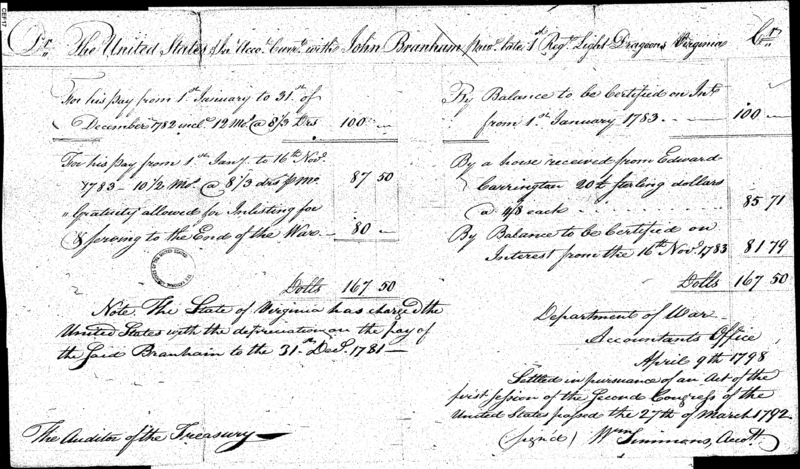 CBF17
Dr. The United States In Acco. Curr. with John Branham priv. late 1st Regt. Light Dragoons Virginia Cr.
For his pay from 1st January to 31st of
December 1782 incl. 12 Mo. @ 8 1/3 Drs 100 —
For his pay from 1st Jany. to 16th Nov.
1783 - 10 1/2 Mo. @ 8 1/3 drs p Mo. 87 50
" Gratuity allowed for Inlisting for
& serving to the End of the War — 80 —
Dolls 167 50
Note. The State of Virginia has charged the
United States with the depreciation on the pay of
the said Branham to the 31st Decr. 1781 —
The Auditor of the Treasury
By Balance to be Certified on Int.
from 1st January 1783 100 —
By a horse received from Edward
Carrington 20 £ sterling dollars
a 4/8 each 85 71
By Balance to be Certified on
Interest from the 16th Nov. 1783 81 79
Dolls 167 50
Department of War
Accountants Office
April 9th 1798
Settled in pursuance of an Act of the
first session of the Second Congress of the
United States passed the 27th of March 1792
(signed) Wm Simmons, Acctt.